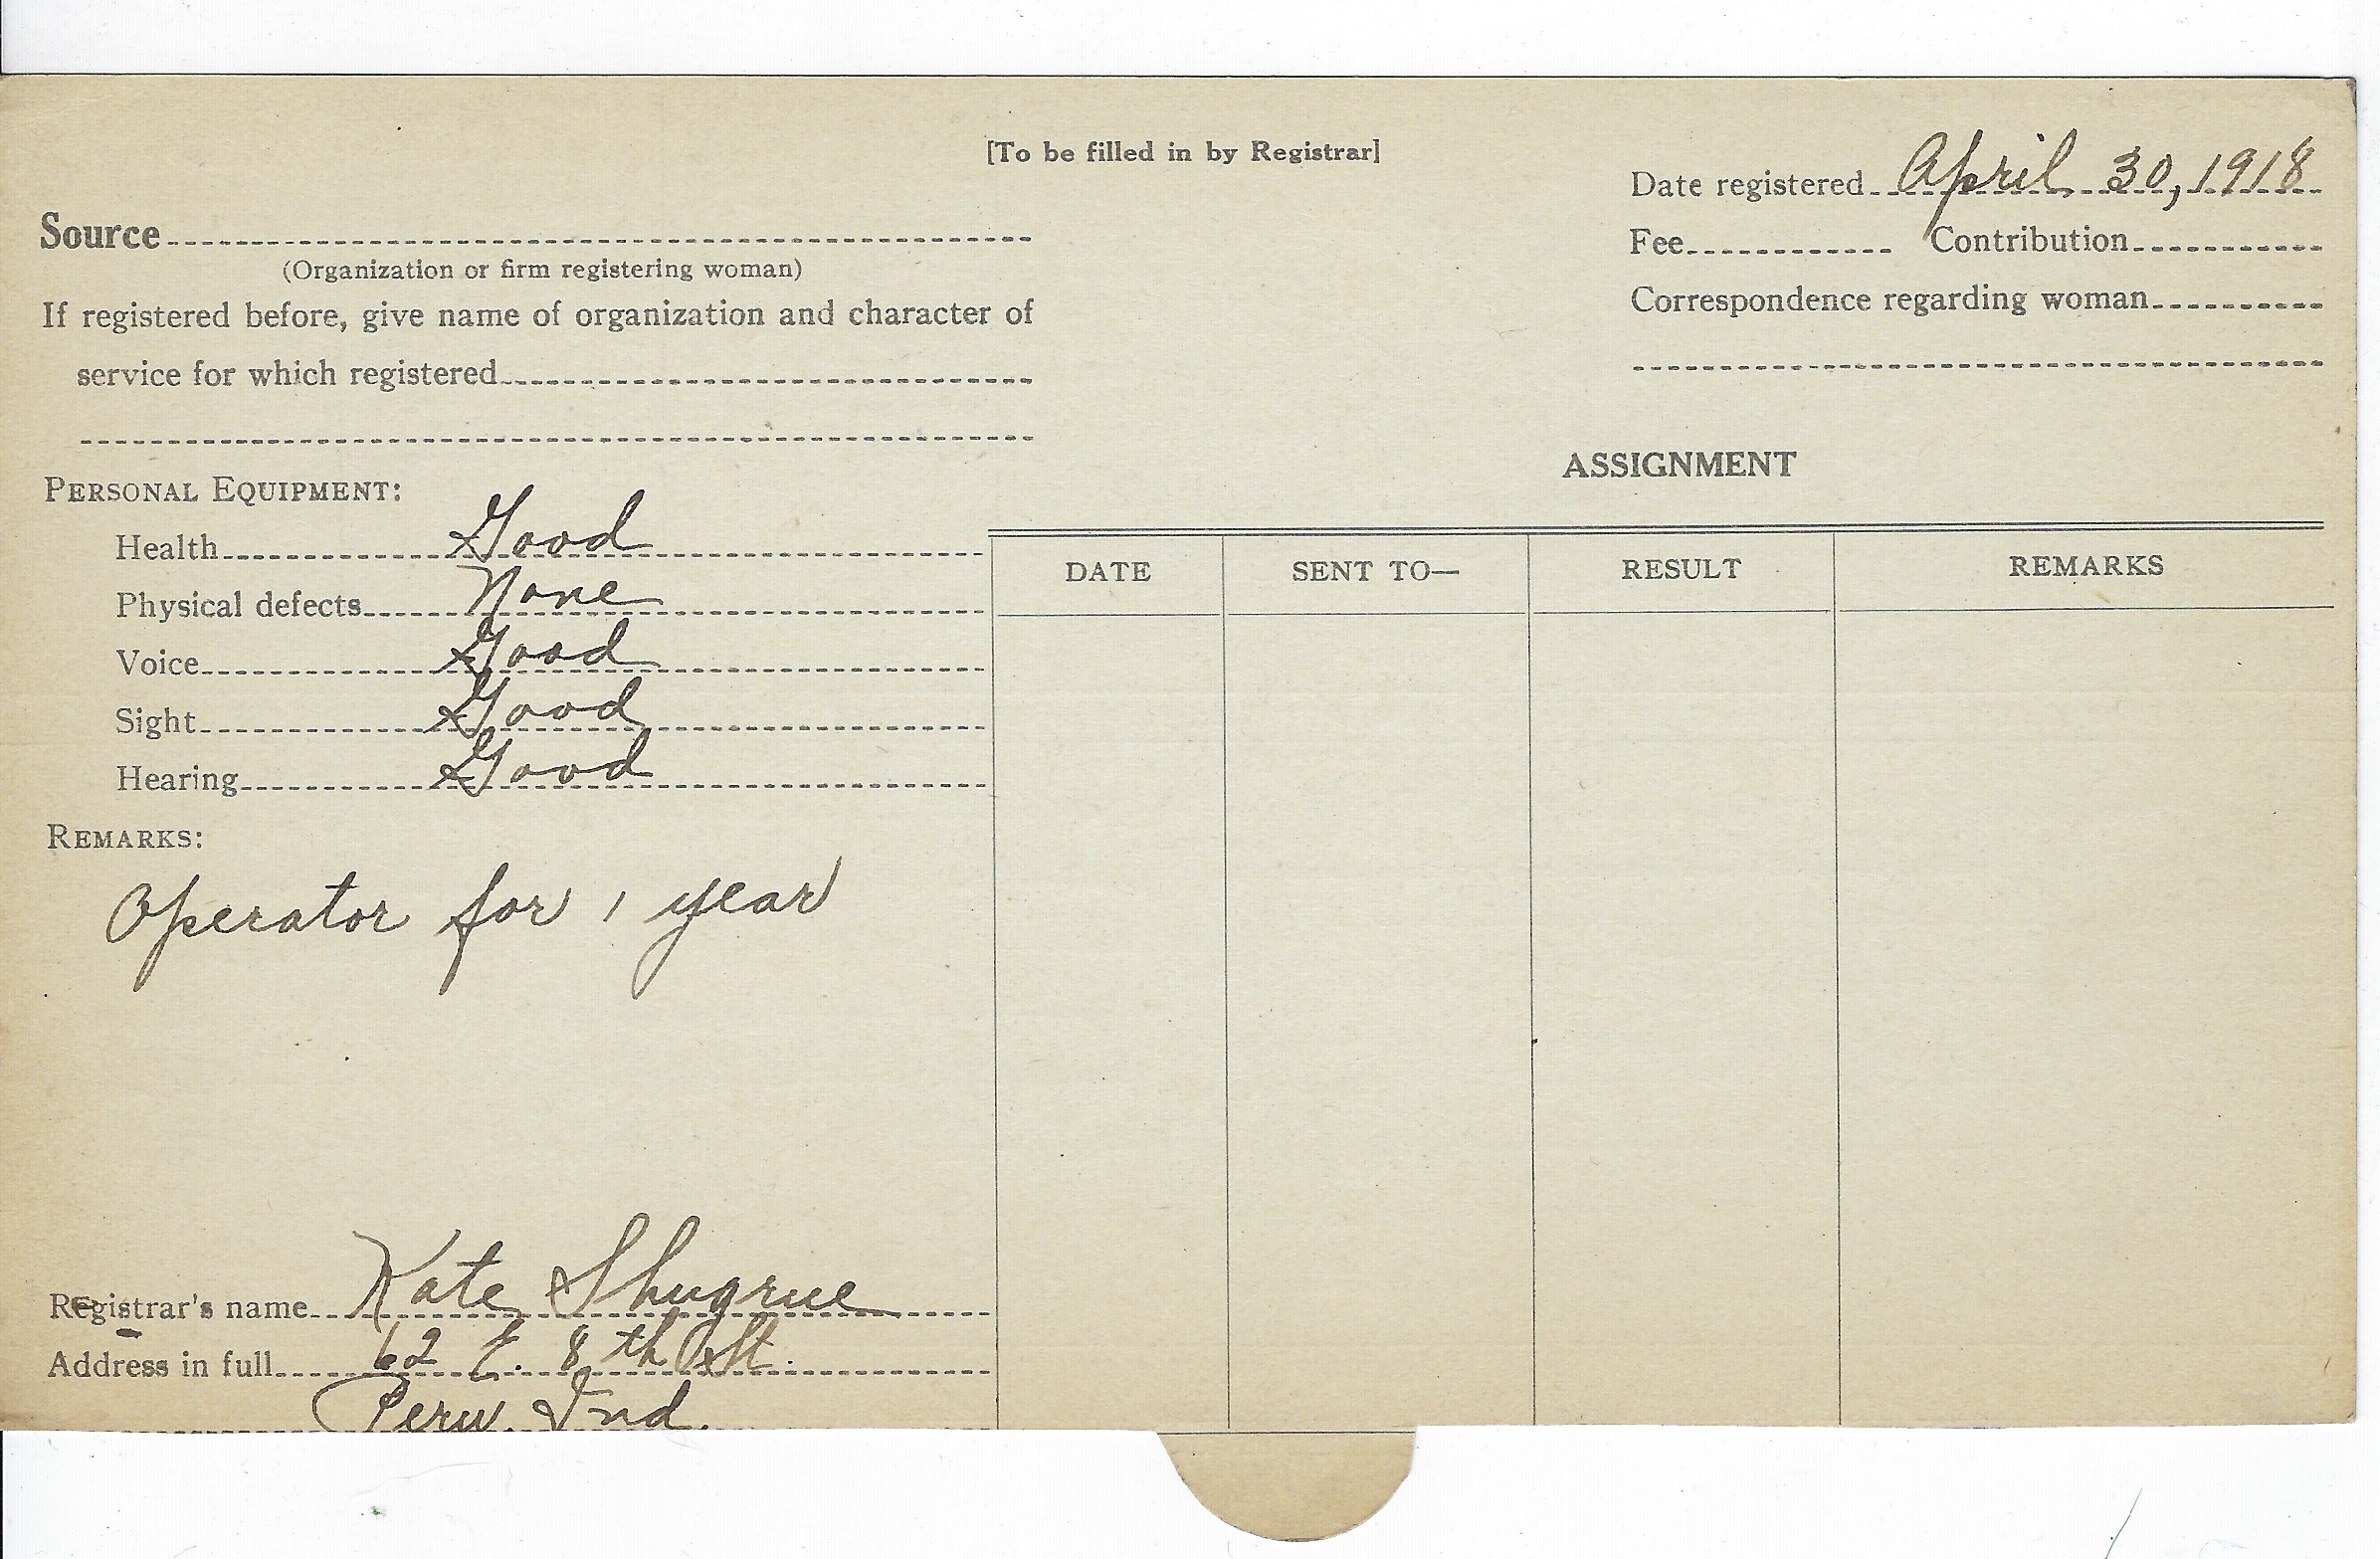 [To be filled in by Registrar]
Date registered April 30, 1918
Fee Contribution
Correspondence regarding woman
Source
(Organization or firm registering woman)
If registered before, give name of organization and character of
service for which registered
PERSONAL EQUIPMENT:
Health Good
Physical defects None
Voice Good
Sight Good
Hearing Good
REMARKS:
Operator for 1 year
Registrar's name Kate Shugrue
Address in full 62 E. 8th St.
Peru, Ind.
ASSIGNMENT
DATE SENT TO— RESULT REMARKS